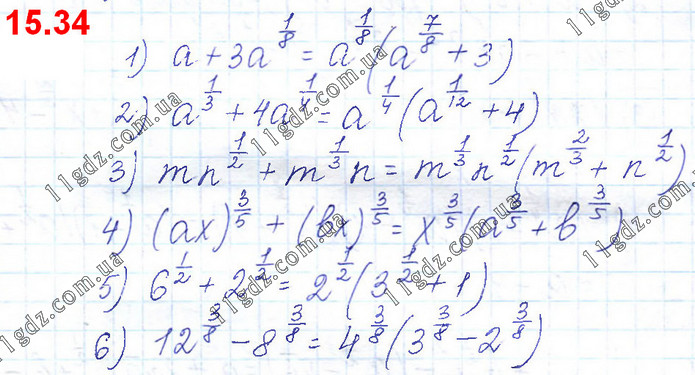 15.34
1) a + 3a^{1/8} = a^{1/8}(a^{7/8} + 3)
2) a^{1/3} + 4a^{1/4} = a^{1/4}(a^{1/12} + 4)
3) mn^{1/2} + m^{1/3}n = m^{1/3}n^{1/2}(m^{2/3} + n^{1/2})
4) (ax)^{3/5} + (bx)^{3/5} = x^{3/5}(a^{3/5} + b^{3/5})
5) 6^{1/2} + 2^{1/2} = 2^{1/2}(3^{1/2} + 1)
6) 12^{3/8} - 8^{3/8} = 4^{3/8}(3^{3/8} - 2^{3/8})
11gdz.com.ua
11gdz.com.ua
11gdz.com.ua
11gdz.com.ua
11gdz.com.ua
11gdz.com.ua